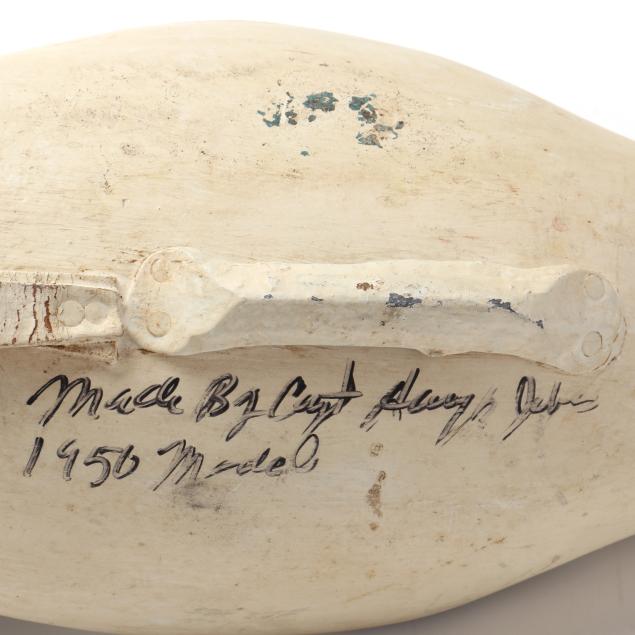 Made By Capt Harry Jobes
1950 Model